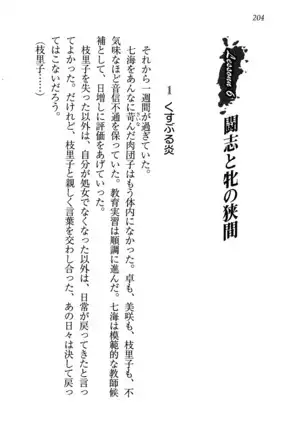 204
Lesson 6
闘志と牝の狭間
1 くすぶる炎
それから一週間が過ぎていた。
七海をあんなに苛んだ肉団子はもう体内になかった。卓も、美咲も、枝里子も、不
気味なほど音信不通を保っていた。教育実習は順調に進んだ。七海は模範的な教師候
補として、日増しに評価をあげていった。
枝里子を失った以外は、自分が処女でなくなった以外は、日常が戻ってきたと言っ
てよかった。だけれど、枝里子と親しく言葉を交わし合った、あの日々は決して戻っ
てはこないだろう。
(枝里子……)